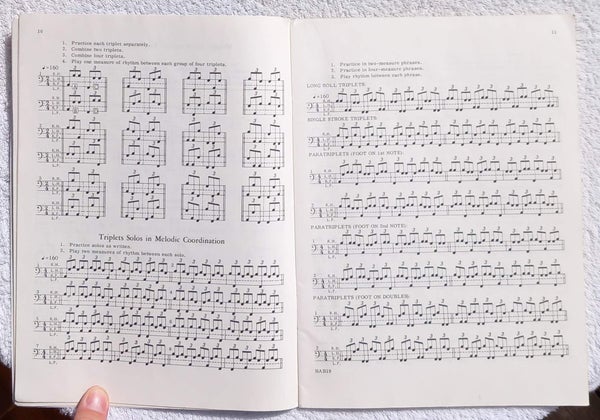 10
1. Practice each triplet separately.
2. Combine two triplets.
3. Combine four triplets.
4. Play one measure of rhythm between each group of four triplets.
♩=160
Triplets Solos in Melodic Coordination
1. Practice solos as written.
2. Play two measures of rhythm between each solo.
♩=160
11
1. Practice in two-measure phrases.
2. Practice in four-measure phrases.
3. Play rhythm between each phrase.
LONG ROLL TRIPLETS:
♩=160
SINGLE STROKE TRIPLETS:
PARATRIPLETS (FOOT ON 1st NOTE):
PARATRIPLETS (FOOT ON 2nd NOTE):
PARATRIPLETS (FOOT ON DOUBLES):
HAB19